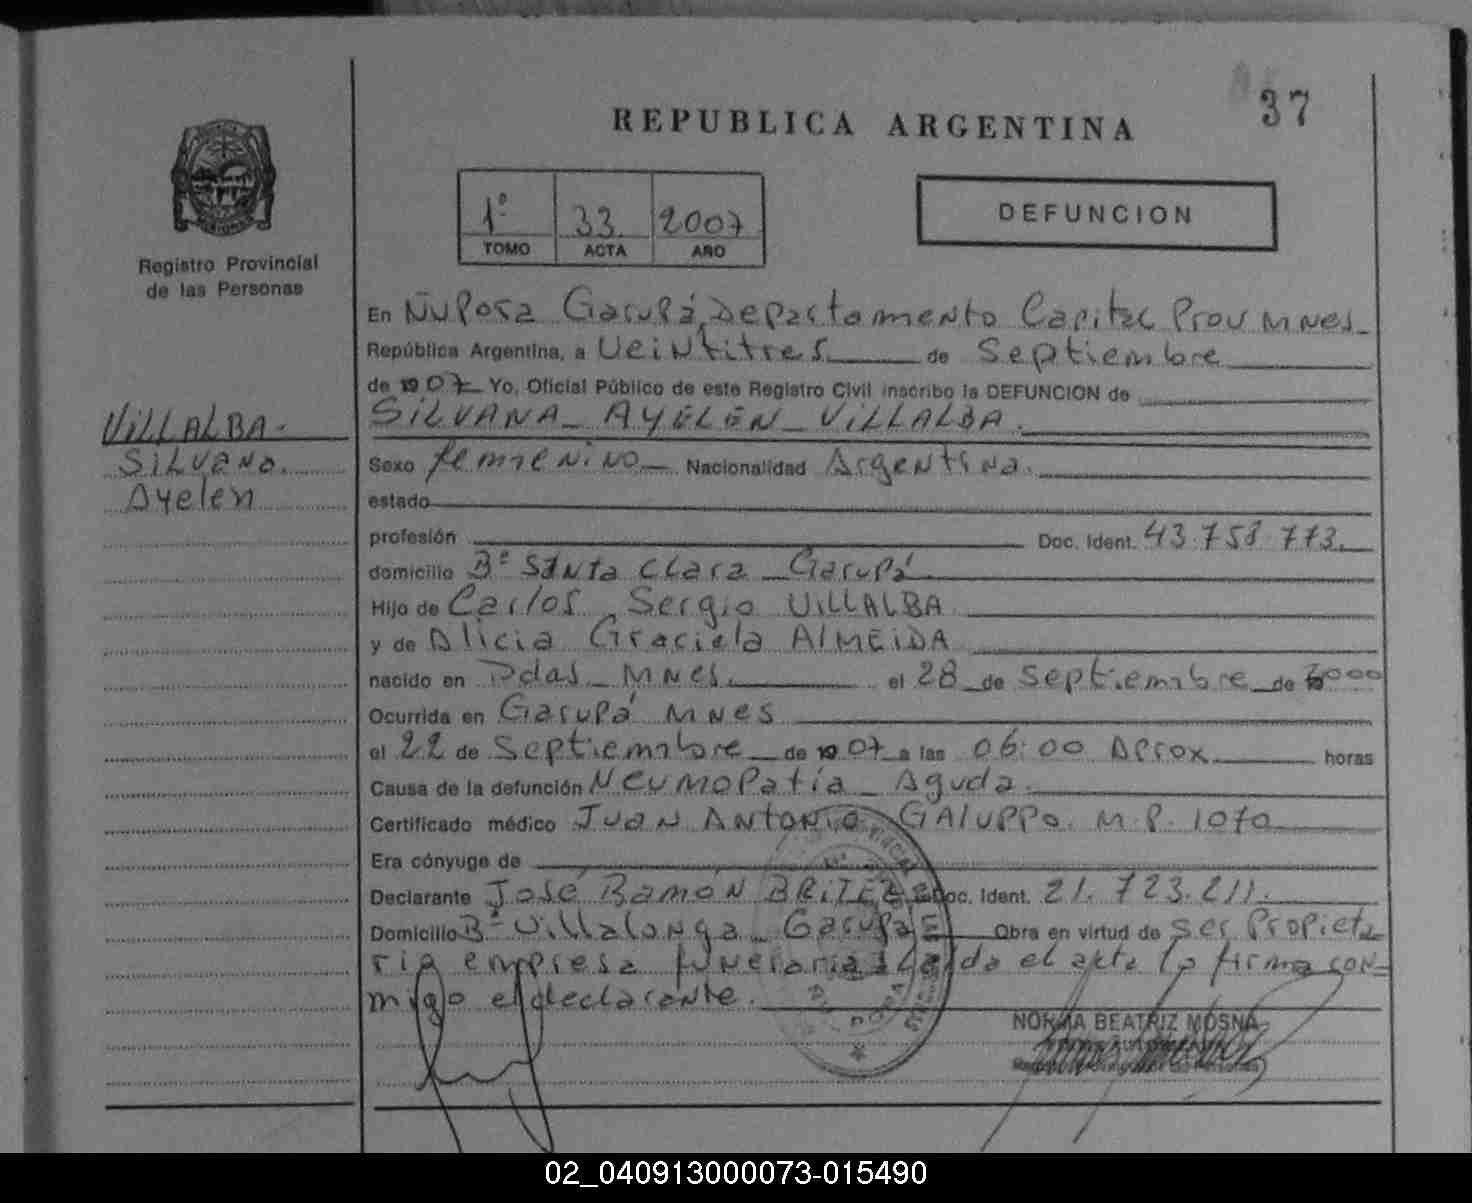 37
REPUBLICA ARGENTINA
1º 33. 2007
TOMO ACTA AÑO
DEFUNCION
Registro Provincial
de las Personas
En Ñuporá Garupá, Departamento Capital Prov Mnes.
República Argentina, a Veintitres de Septiembre
de 1907 Yo, Oficial Público de este Registro Civil inscribo la DEFUNCION de
SILVANA AYELEN VILLALBA.
VILLALBA.
Silvana.
Ayelen
Sexo femenino Nacionalidad Argentina.
estado
profesión Doc. Ident. 43.758.773.
domicilio Bº Santa Clara Garupá
Hijo de Carlos Sergio VILLALBA
y de Alicia Graciela ALMEIDA
nacido en Pdas. Mnes. el 28 de septiembre de 2000
Ocurrida en Garupá Mnes
el 22 de Septiembre de 1907 a las 06:00 Aprox horas
Causa de la defunción Neumopatía Aguda.
Certificado médico Juan Antonio GALUPPO. M.P. 1070
Era cónyuge de
Declarante José Ramón BRITEZ Doc. Ident. 21.723.211.
Domicilio Bº Villalonga Garupá Obra en virtud de ser propieta
rio empresa funeraria Leída el acta la firma con-
migo el declarante.
NORMA BEATRIZ MOSNA
02_040913000073-015490